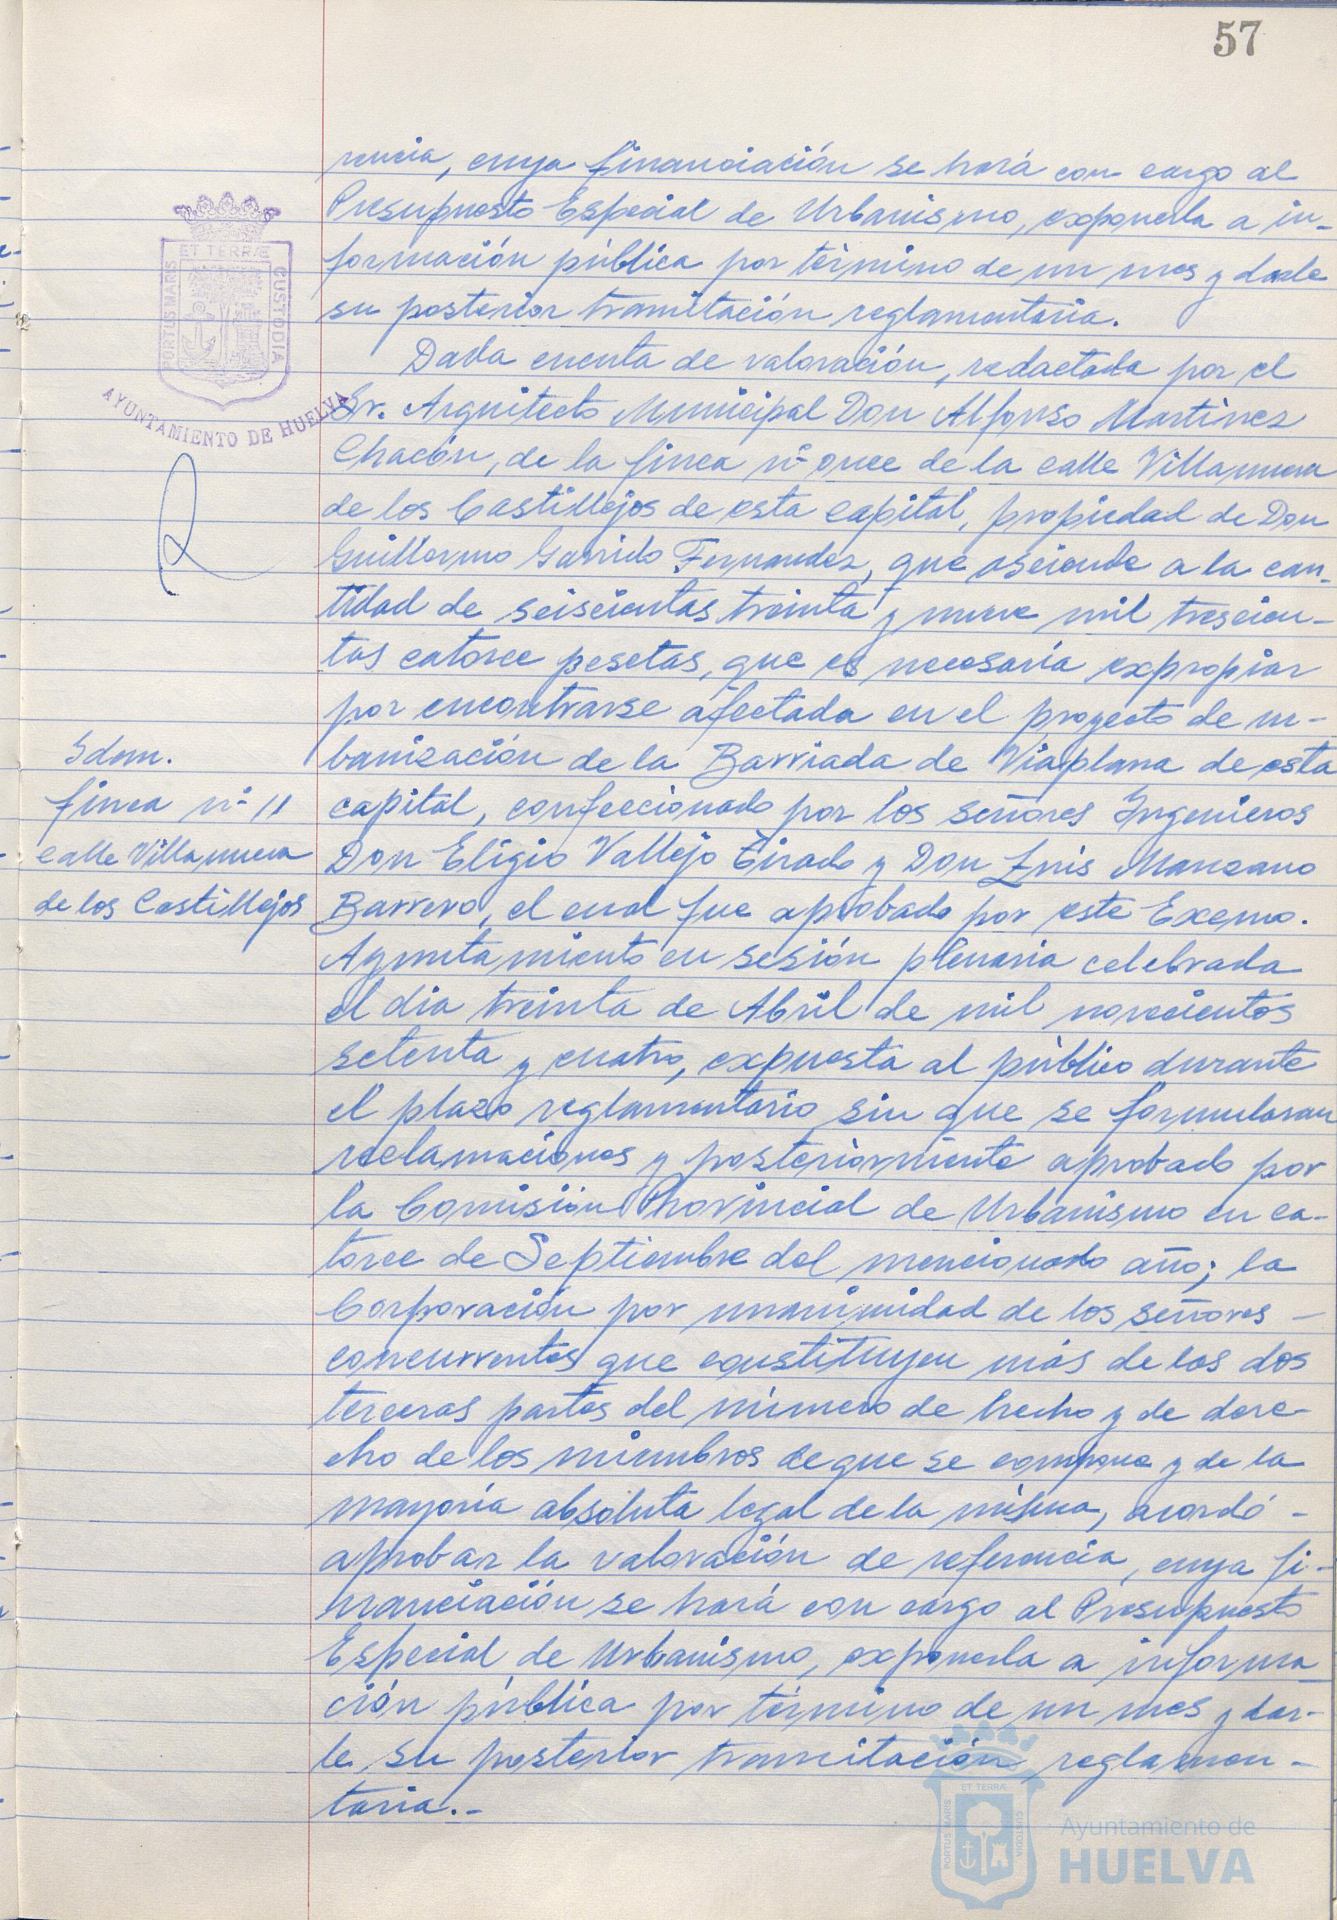 57
rencia, cuya financiación se hará con cargo al
Presupuesto Especial de Urbanismo, exponerla a in-
formación pública por término de un mes y darle
su posterior tramitación reglamentaria.
Dada cuenta de valoración, redactada por el
Sr. Arquitecto Municipal Don Alfonso Martinez
Chacón, de la finca nº once de la calle Villanueva
de los Castillejos de esta capital, propiedad de Don
Guillermo Garrido Fernandez, que asciende a la can-
tidad de seiscientas treinta y nueve mil trescien-
tas catorce pesetas, que es necesaria expropiar
por encontrarse afectada en el proyecto de ur-
banización de la Barriada de Viaplana de esta
capital, confeccionado por los señores Ingenieros
Don Eligio Vallejo Tirado y Don Luis Manzano
Barrero, el cual fue aprobado por este Excmo.
Ayuntamiento en sesión plenaria celebrada
el dia treinta de Abril de mil novecientos
setenta y cuatro, expuesta al público durante
el plazo reglamentario sin que se formularan
reclamaciones y posteriormente aprobado por
la Comisión Provincial de Urbanismo en ca-
torce de Septiembre del mencionado año; la
Corporación por unanimidad de los señores -
concurrentes que constituyen más de las dos
terceras partes del número de hecho y de dere-
cho de los miembros de que se compone y de la
mayoría absoluta legal de la misma, acordó -
aprobar la valoración de referencia, cuya fi-
nanciación se hará con cargo al Presupuesto
Especial de Urbanismo, exponerla a informa
ción pública por término de un mes y dar-
le su posterior tramitación reglamen-
taria.-
Idem.
finca nº 11
calle Villanueva
de los Castillejos
PORTUS MARIS ET TERRÆ CUSTODIA
AYUNTAMIENTO DE HUELVA
PORTUS MARIS ET TERRÆ CUSTODIA
Ayuntamiento de
HUELVA